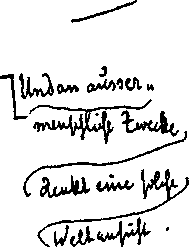 Und an ausser„
menschliche Zwecke,
denkt eine solche
Weltansicht.